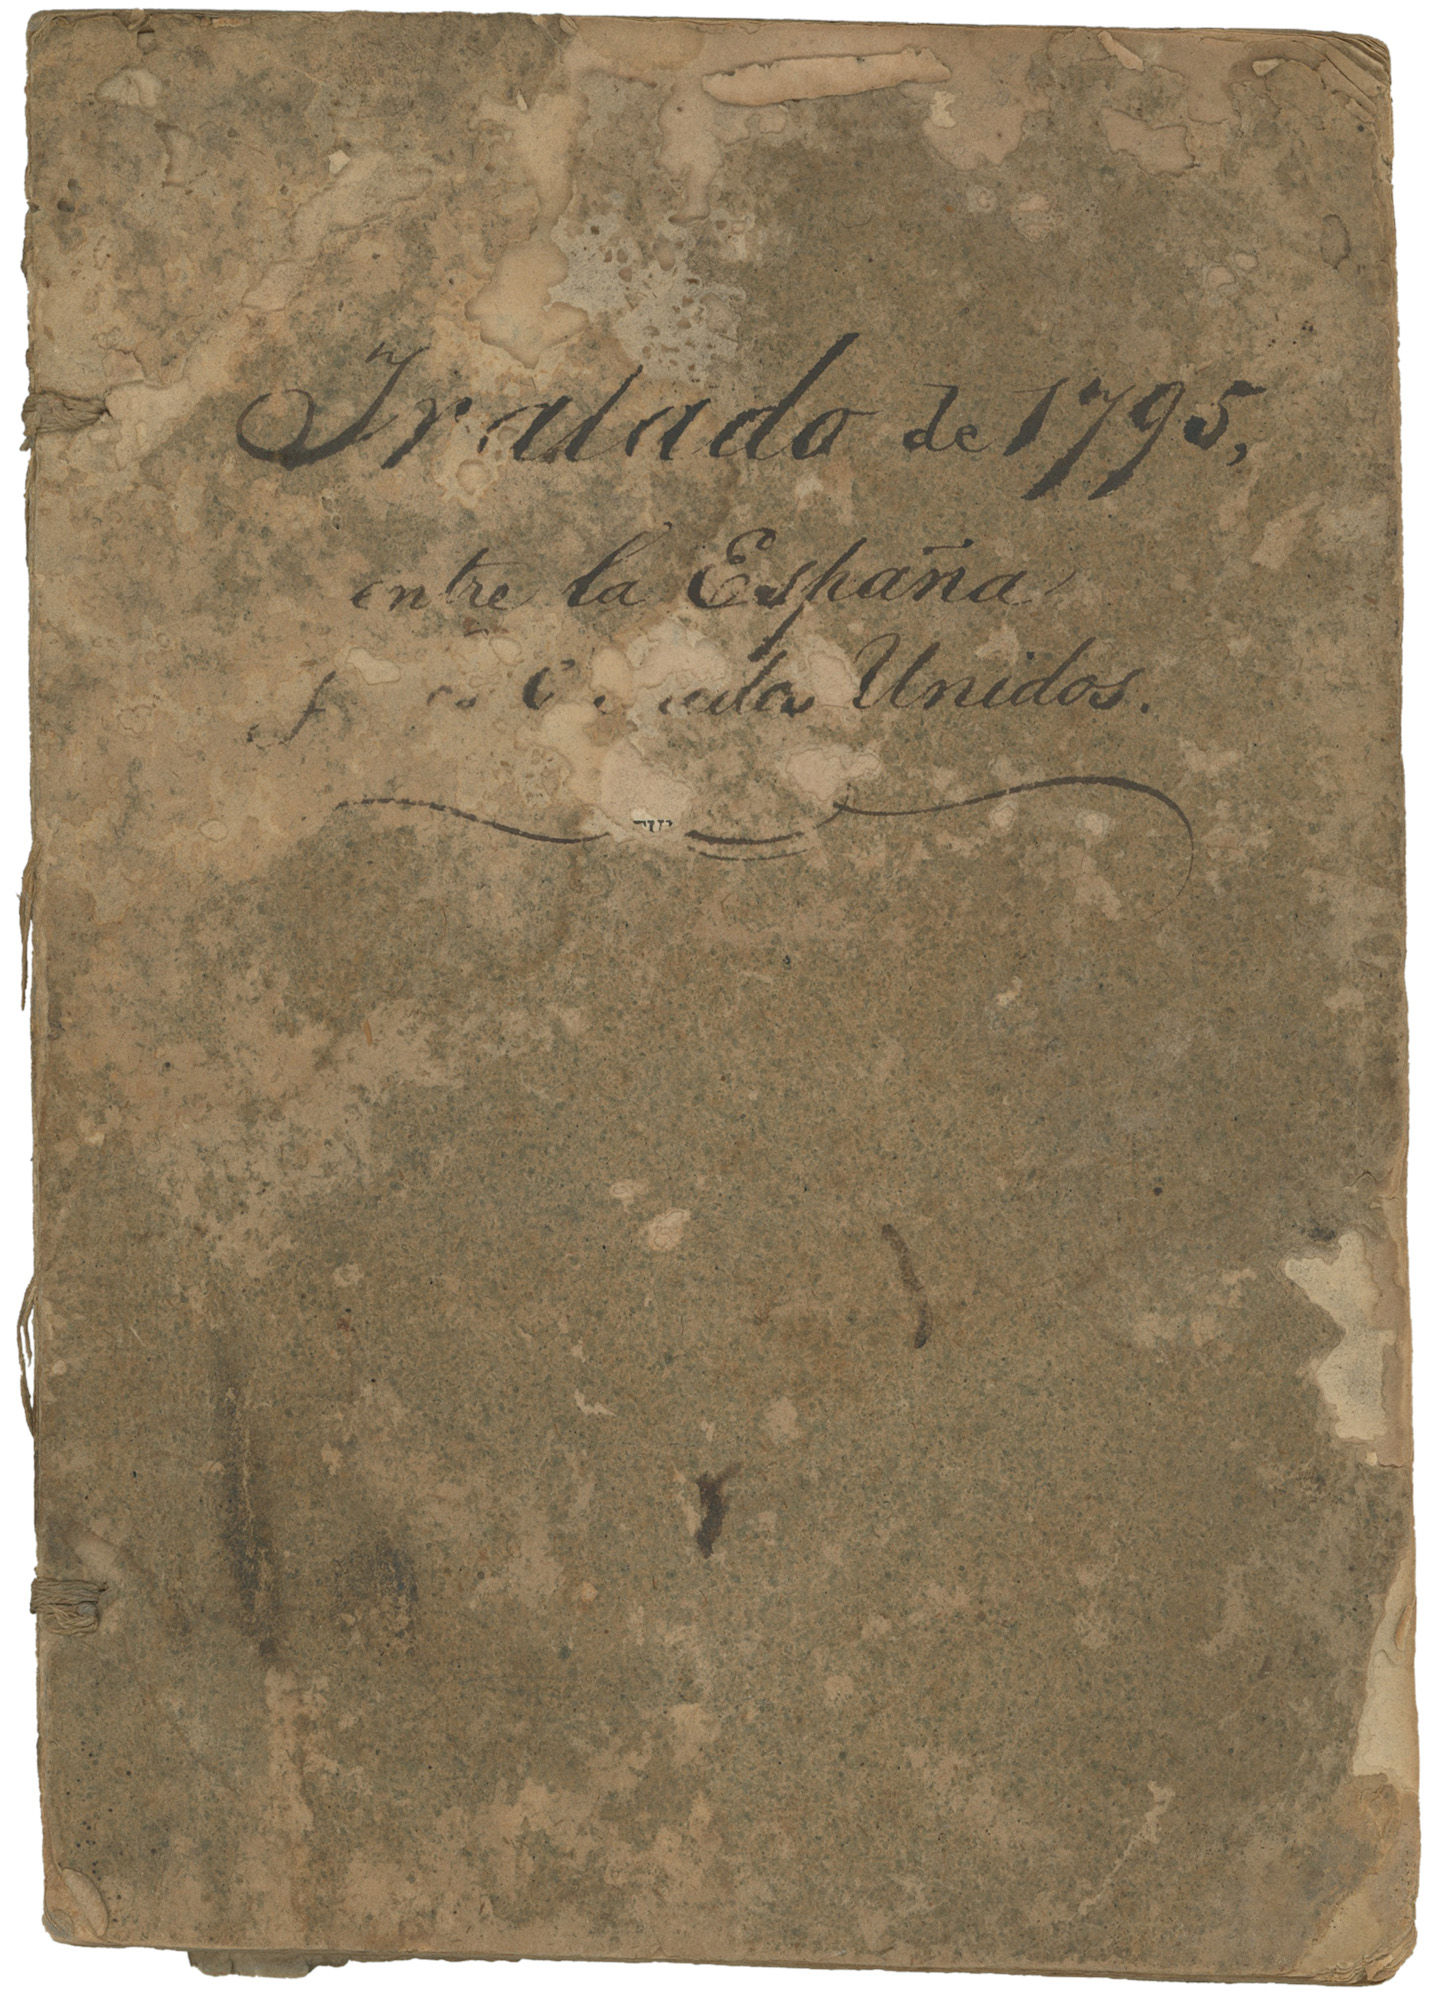 Tratado de 1795,
entre la España
y los Estados Unidos.